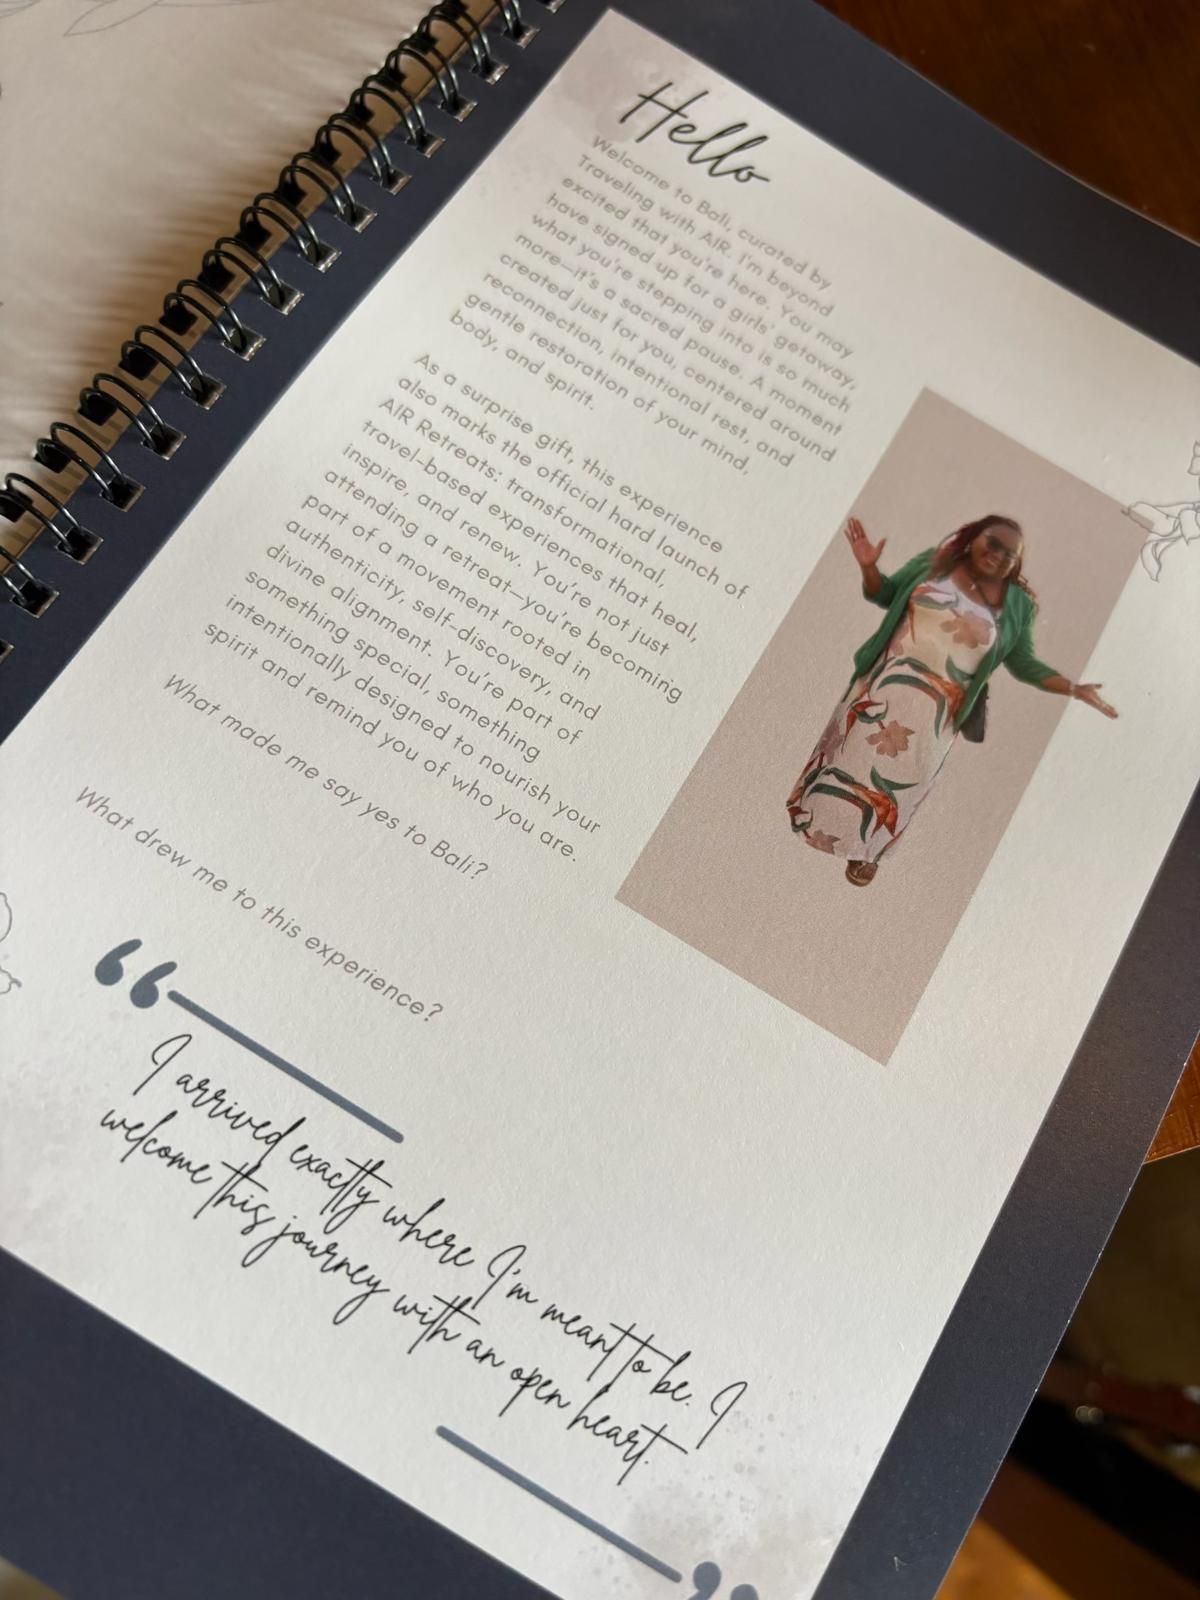 Hello
Welcome to Bali, curated by
Traveling with AIR. I'm beyond
excited that you're here. You may
have signed up for a girls' getaway,
what you're stepping into is so much
more—it's a sacred pause. A moment
created just for you, centered around
reconnection, intentional rest, and
gentle restoration of your mind,
body, and spirit.
As a surprise gift, this experience
also marks the official hard launch of
AIR Retreats: transformational,
travel-based experiences that heal,
inspire, and renew. You're not just
attending a retreat—you're becoming
part of a movement rooted in
authenticity, self-discovery, and
divine alignment. You're part of
something special, something
intentionally designed to nourish your
spirit and remind you of who you are.
What made me say yes to Bali?
What drew me to this experience?
“
I arrived exactly where I'm meant to be. I
welcome this journey with an open heart.
”